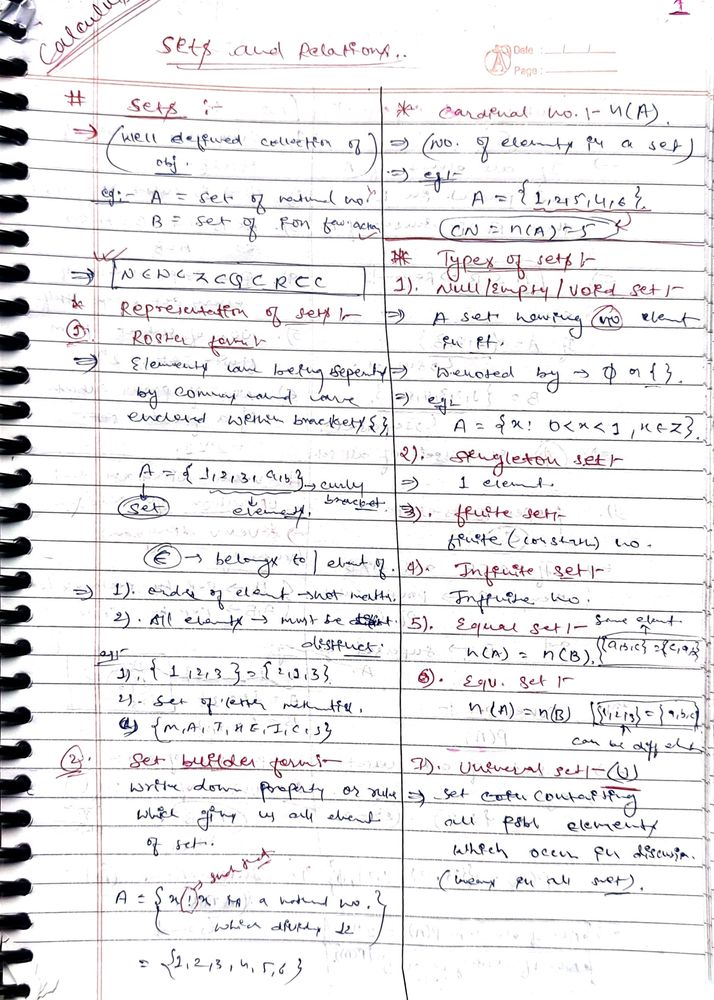 1
Calculus
Sets and Relations..
Date : / /
Page :
# Sets :-
⇒ (Well defined collection of
obj.
eg:- A = set of natural no.
B = set of
⇒ N C W C Z C Q C R C C
* Representation of sets :-
1). Roster form :-
⇒ Elements are being
by commas and are
enclosed within brackets { }
A = { 1, 2, 3, a, b } → curly
bracket.
set elements.
∈ → belongs to / element of.
⇒ 1). order of element → not matter.
2). All elements → must be
distinct.
eg:-
1). { 1, 2, 3 } = { 2, 1, 3 }
2). Set of letter
{ M, A, T, H, E, I, C, S }
2. Set builder form :-
Write down property or rule
which gives us all element
of set.
such that
A = { x : x is a natural no.
which divides 12 }
= { 1, 2, 3, 4, 5, 6 }
* Cardinal no. :- n(A).
⇒ (No. of elements in a set)
⇒ eg :-
A = { 1, 2, 5, 4, 6 }.
CN = n(A) = 5
** Types of sets :-
1). Null / Empty / Void set :-
⇒ A set having no element
in it.
⇒ Denoted by → φ or { }.
⇒ eg :-
A = { x : 0 < x < 1, x ∈ Z }.
2). Singleton set :-
⇒ 1 element.
3). finite set :-
finite (constant) no.
4). Infinite set :-
Infinite no.
5). Equal set :- Same element.
n(A) = n(B). [{a,b,c} = {c,a,b}]
6). Equ. set :-
n(A) = n(B) [{1,2,3} = {a,b,c}]
can be diff element
7). Universal set :- (U)
⇒ set containing
all elements
which occur in
(means in all set).